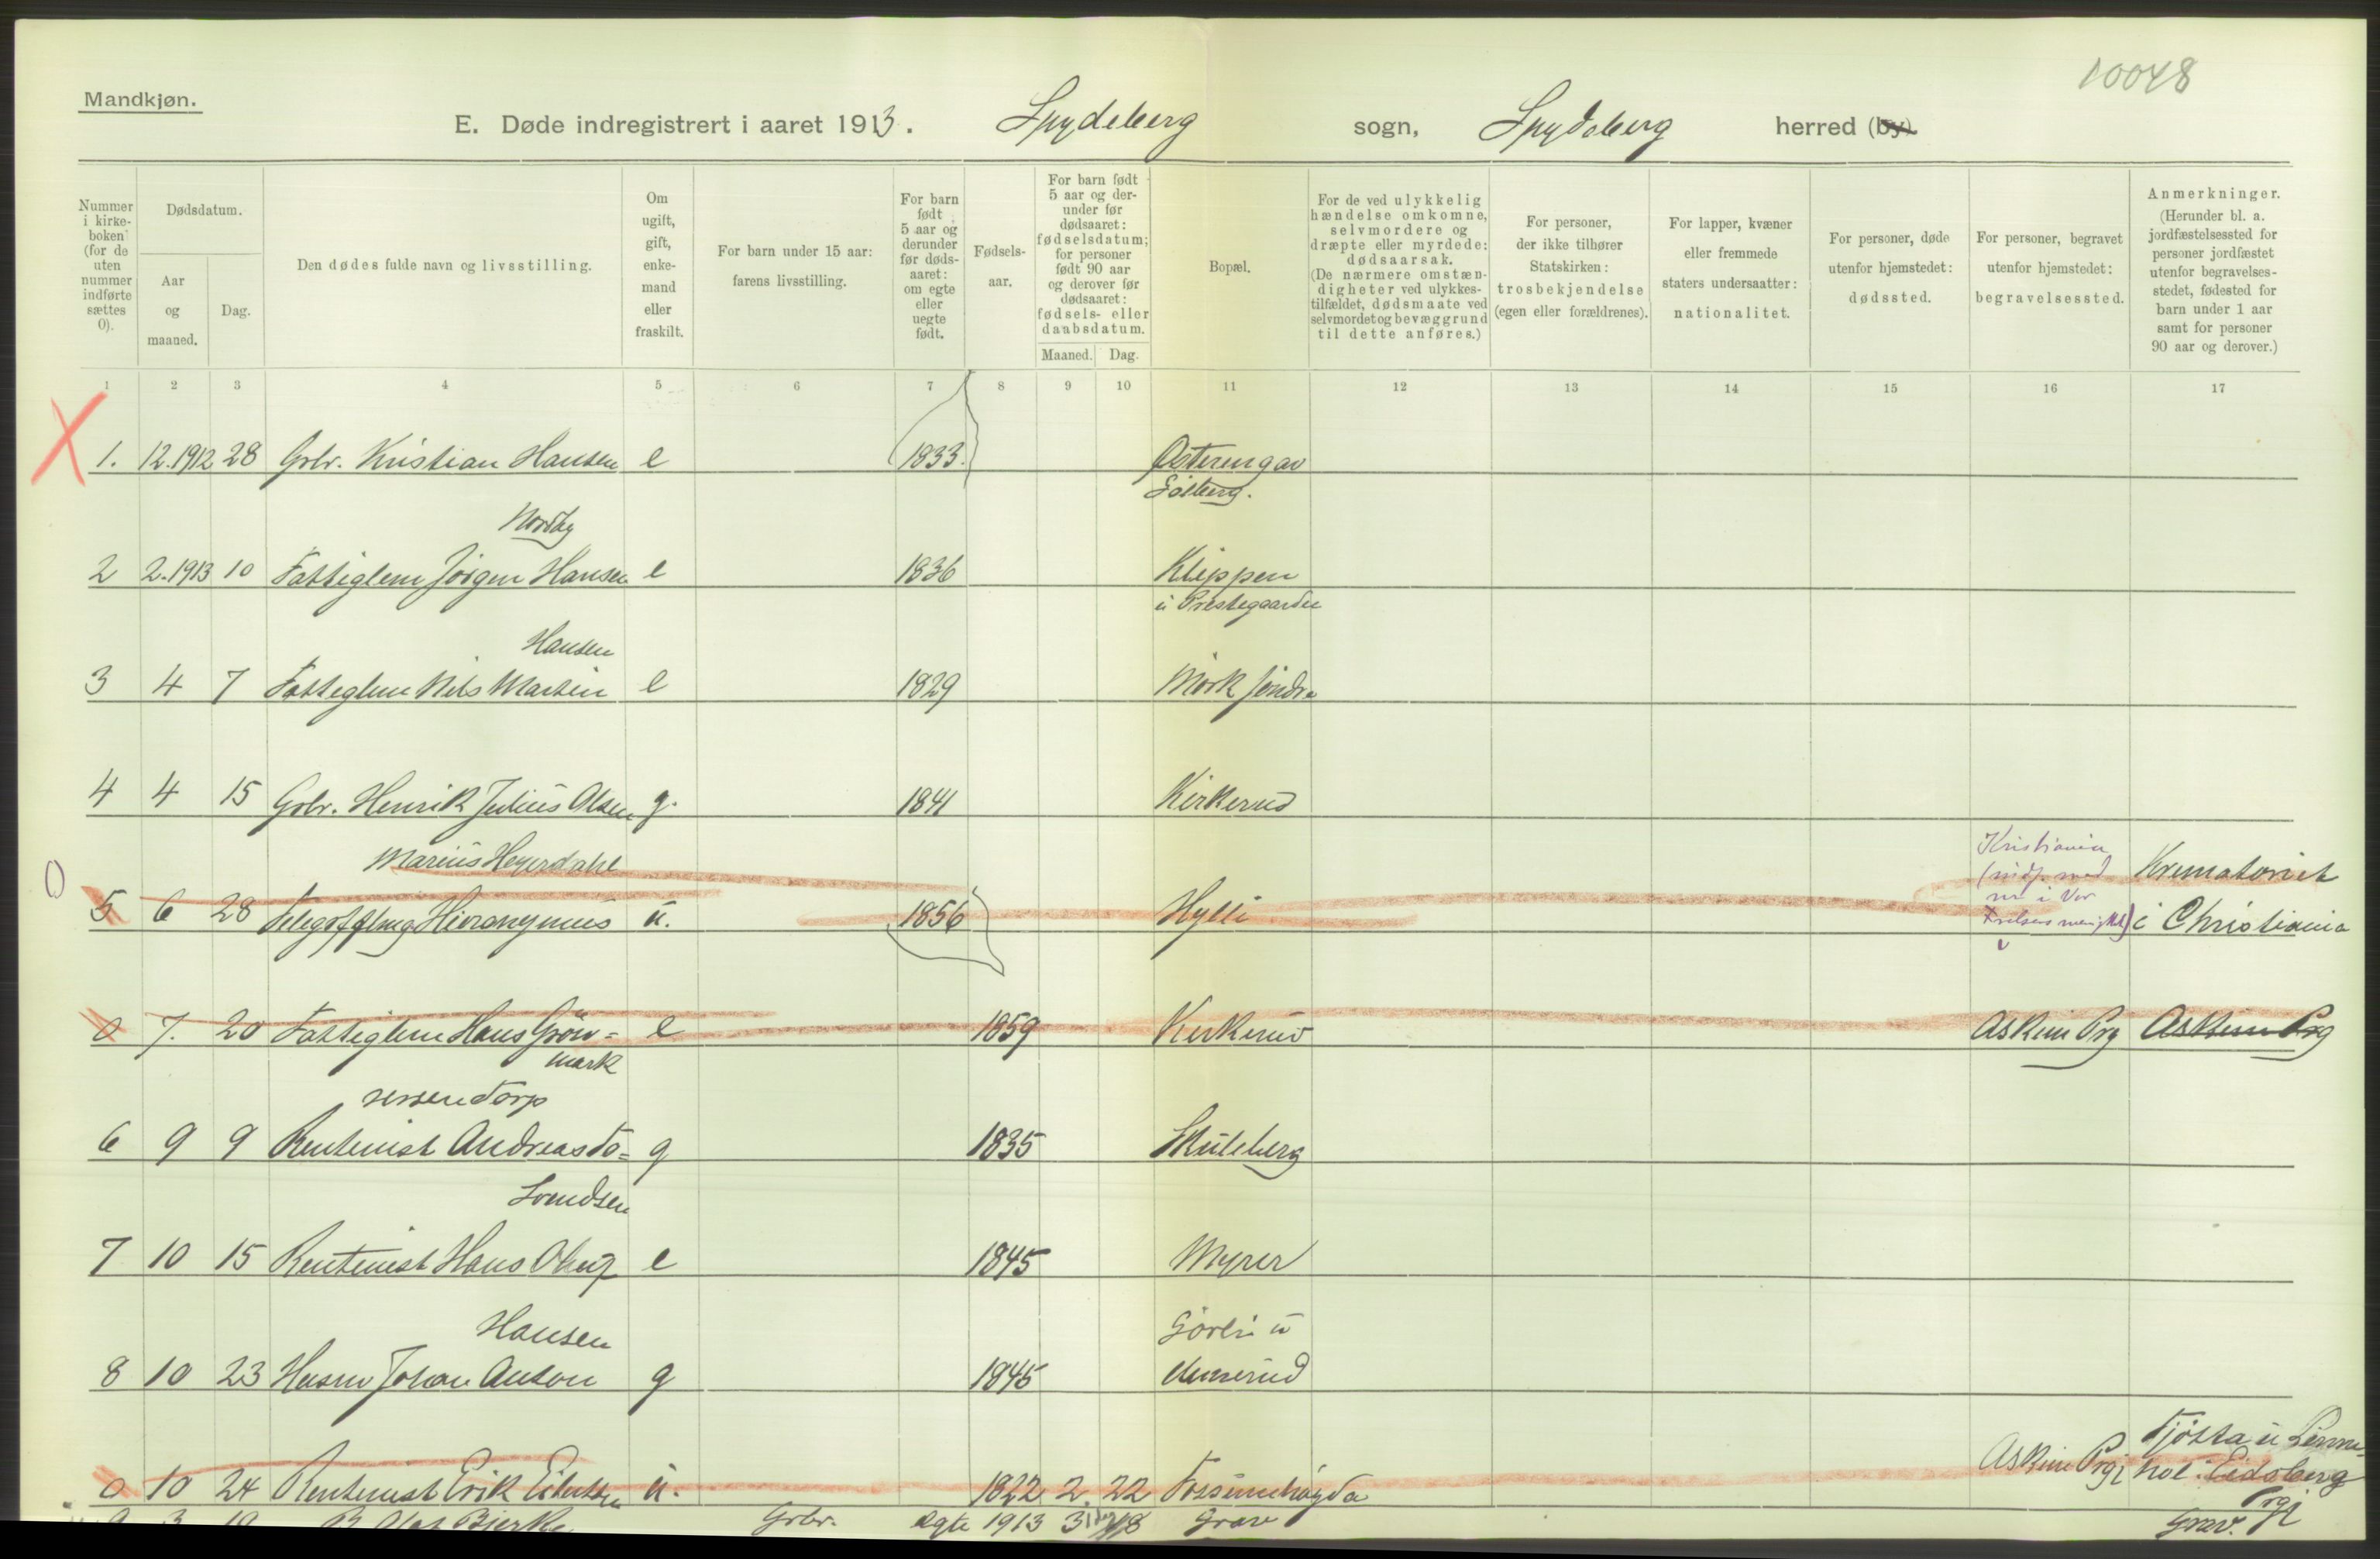 10048
Mandkjøn.
E. Døde indregistrert i aaret 1913. Spydeberg sogn, Spydeberg herred (by).
Nummer i kirkeboken (for de uten nummer indførte sættes 0).
Dødsdatum.
Aar og maaned.
Dag.
Den dødes fulde navn og livsstilling.
Om ugift, gift, enkemand eller fraskilt.
For barn under 15 aar: farens livsstilling.
For barn født 5 aar og derunder før dødsaaret: om egte eller uegte født.
Fødselsaar.
For barn født 5 aar og derunder før dødsaaret: fødselsdatum; for personer født 90 aar og derover før dødsaaret: fødsels- eller daabsdatum.
Maaned. Dag.
Bopæl.
For de ved ulykkelig hændelse omkomne, selvmordere og dræpte eller myrdede: dødsaarsak. (De nærmere omstændigheter ved ulykkestilfældet, dødsmaate ved selvmordet og bevæggrund til dette anføres.)
For personer, der ikke tilhører Statskirken: trosbekjendelse (egen eller forældrenes).
For lapper, kvæner eller fremmede staters undersaatter: nationalitet.
For personer, døde utenfor hjemstedet: dødssted.
For personer, begravet utenfor hjemstedet: begravelsessted.
Anmerkninger. (Herunder bl. a. jordfæstelsessted for personer jordfæstet utenfor begravelsesstedet, fødested for barn under 1 aar samt for personer 90 aar og derover.)
1 2 3 4 5 6 7 8 9 10 11 12 13 14 15 16 17
1. 12.1912 28 Grbr. Kristian Hansen e 1833. Østerengav
Solberg.
Nordby
2 2.1913 10 Fattiglem Jörgen Hansen e 1836 Klippen
u Prestegaarden
Hansen
3 4 7 Fattiglem Nils Martin e 1829 Mörk söndre
4 4 15 Grbr. Henrik Julius Olsen g. 1841 Kirkerud
Marius Heyerdahl Kristiania
0 Krematoriet
5 6 28 Hieronymus u. 1856 Hylli i Christiania
0 7. 20 Fattiglem Hans Grön= e 1859 Kirkerud Askim Prg Askim Prg
mark
nessen Torp
6 9 9 Rentenist Andreas To= g 1835 Skuleberg
Svendsen
7 10 15 Rentenist Hans Olaug e 1845 Myrer
Hansen Görli u
8 10 23 Husm Johan Anton g 1845 Unnerud
Tjösta u
0 10 24 Rentenist Erik Eilertsen u. 1822 2. 22 Fossumhögda Askim Prgj Eidsberg
Prgj
0 3 19 Olaf Bjerke Grbr. egte 1913 3 18 Grav Grav.